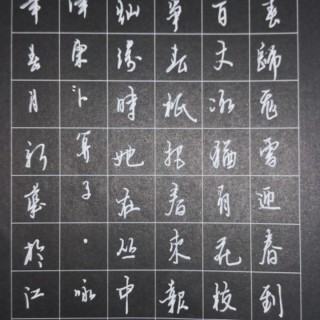 春歸飛雪迎春到
百丈冰猶有花枝
爭春祇把春來報
爛漫時她在丛中
澤東卜算子·咏
春月
於江